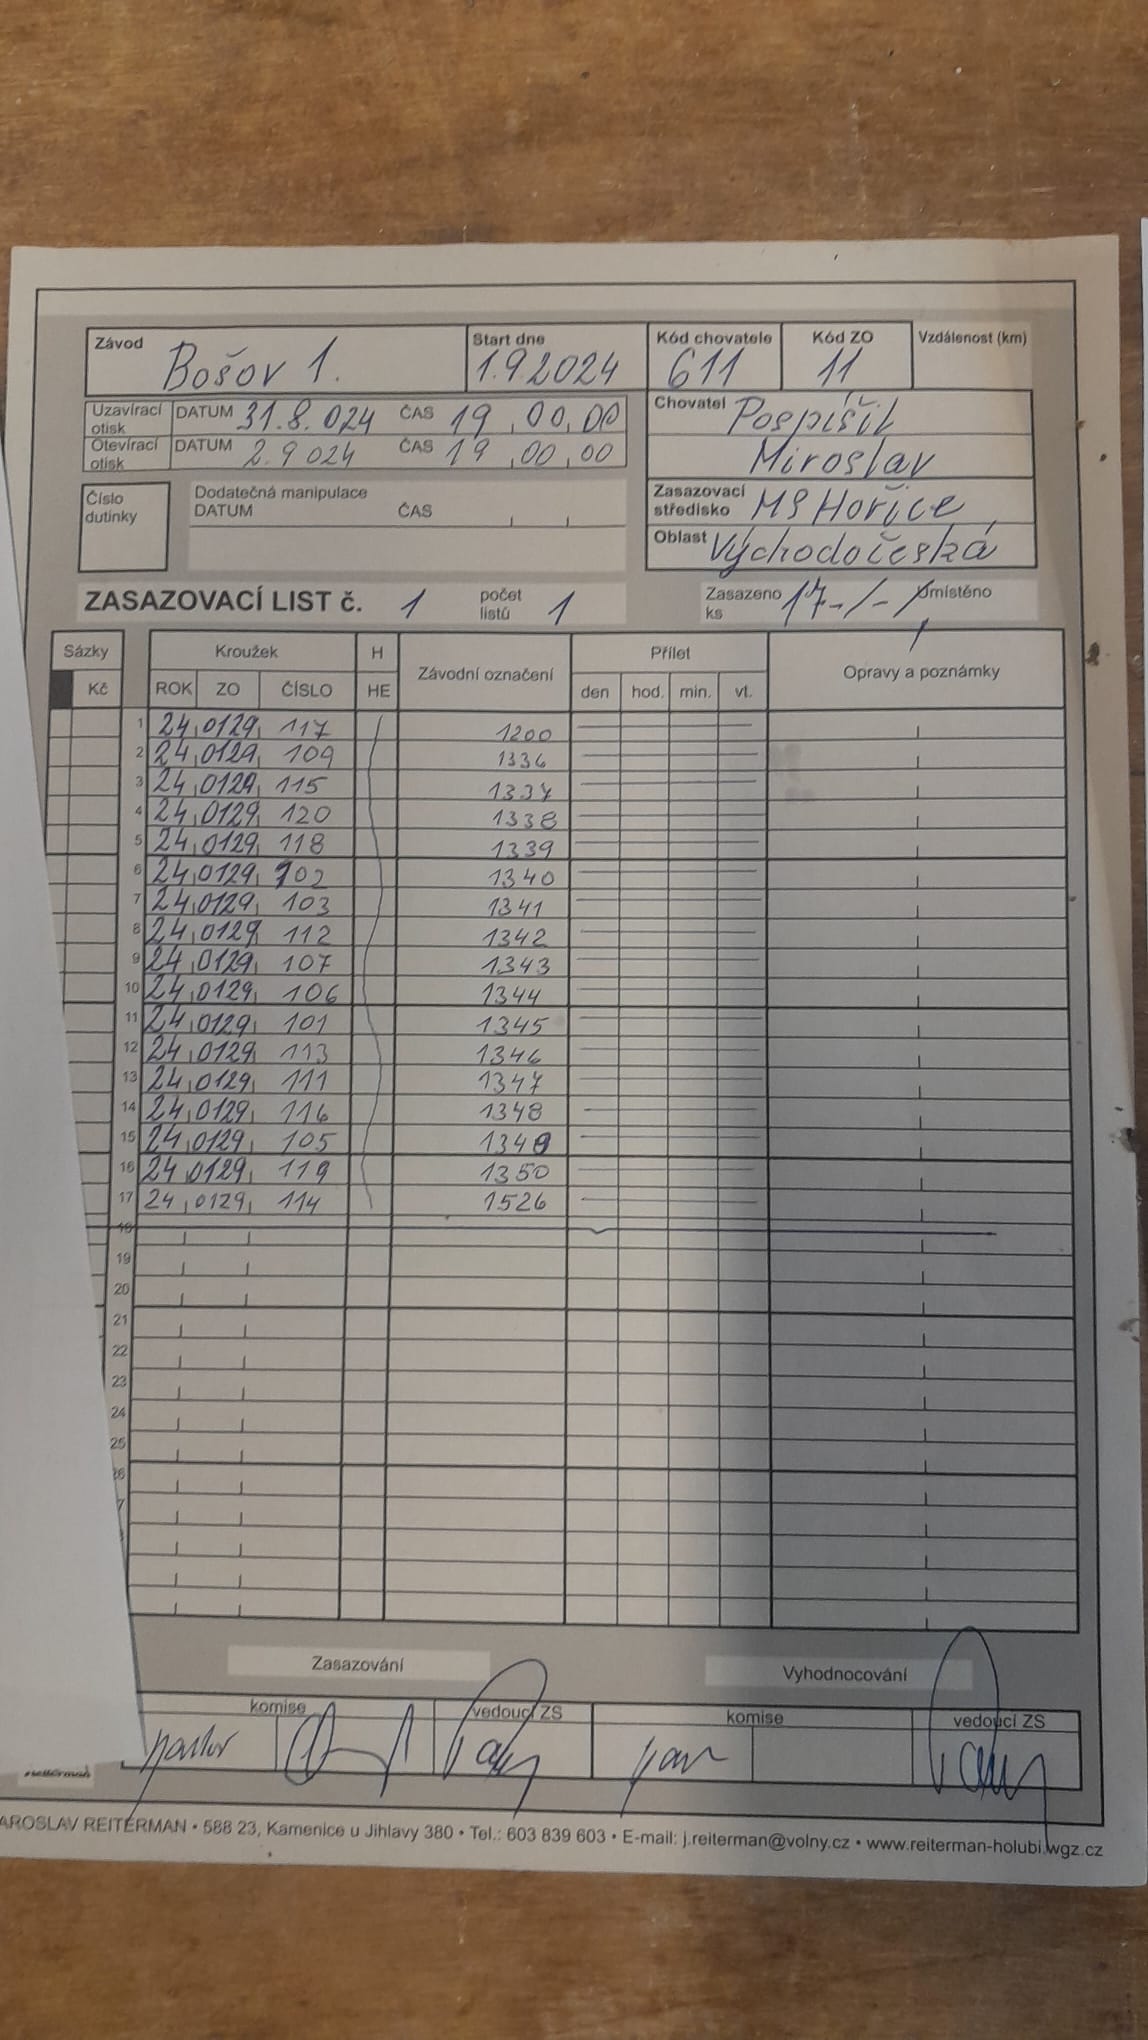 Závod Bošov 1. Start dne 1.9.2024 Kód chovatele 611 Kód ZO 11 Vzdálenost (km)
Uzavírací otisk DATUM 31.8.024 ČAS 19,00,00
Otevírací otisk DATUM 2.9 024 ČAS 19,00,00
Chovatel Pospíšil
Miroslav
Číslo dutinky
Dodatečná manipulace
DATUM ČAS
Zasazovací středisko MS Hořice
Oblast Východočeská
ZASAZOVACÍ LIST č. 1 počet listů 1 Zasazeno ks 17-/-/ Umístěno
Sázky Kroužek H Závodní označení Přílet Opravy a poznámky
Kč ROK ZO ČÍSLO HE den hod. min. vt.
1 24 0129 117 1200
2 24 0129 109 1336
3 24 0129 115 1337
4 24 0129 120 1338
5 24 0129 118 1339
6 24 0129 102 1340
7 24 0129 103 1341
8 24 0129 112 1342
9 24 0129 107 1343
10 24 0129 106 1344
11 24 0129 101 1345
12 24 0129 113 1346
13 24 0129 111 1347
14 24 0129 116 1348
15 24 0129 105 1349
16 24 0129 119 1350
17 24 0129 114 1526
18
19
20
21
22
23
24
25
26
7
Zasazování Vyhodnocování
komise vedoucí ZS komise vedoucí ZS
reiterman
AROSLAV REITERMAN • 588 23, Kamenice u Jihlavy 380 • Tel.: 603 839 603 • E-mail: j.reiterman@volny.cz • www.reiterman-holubi.wgz.cz